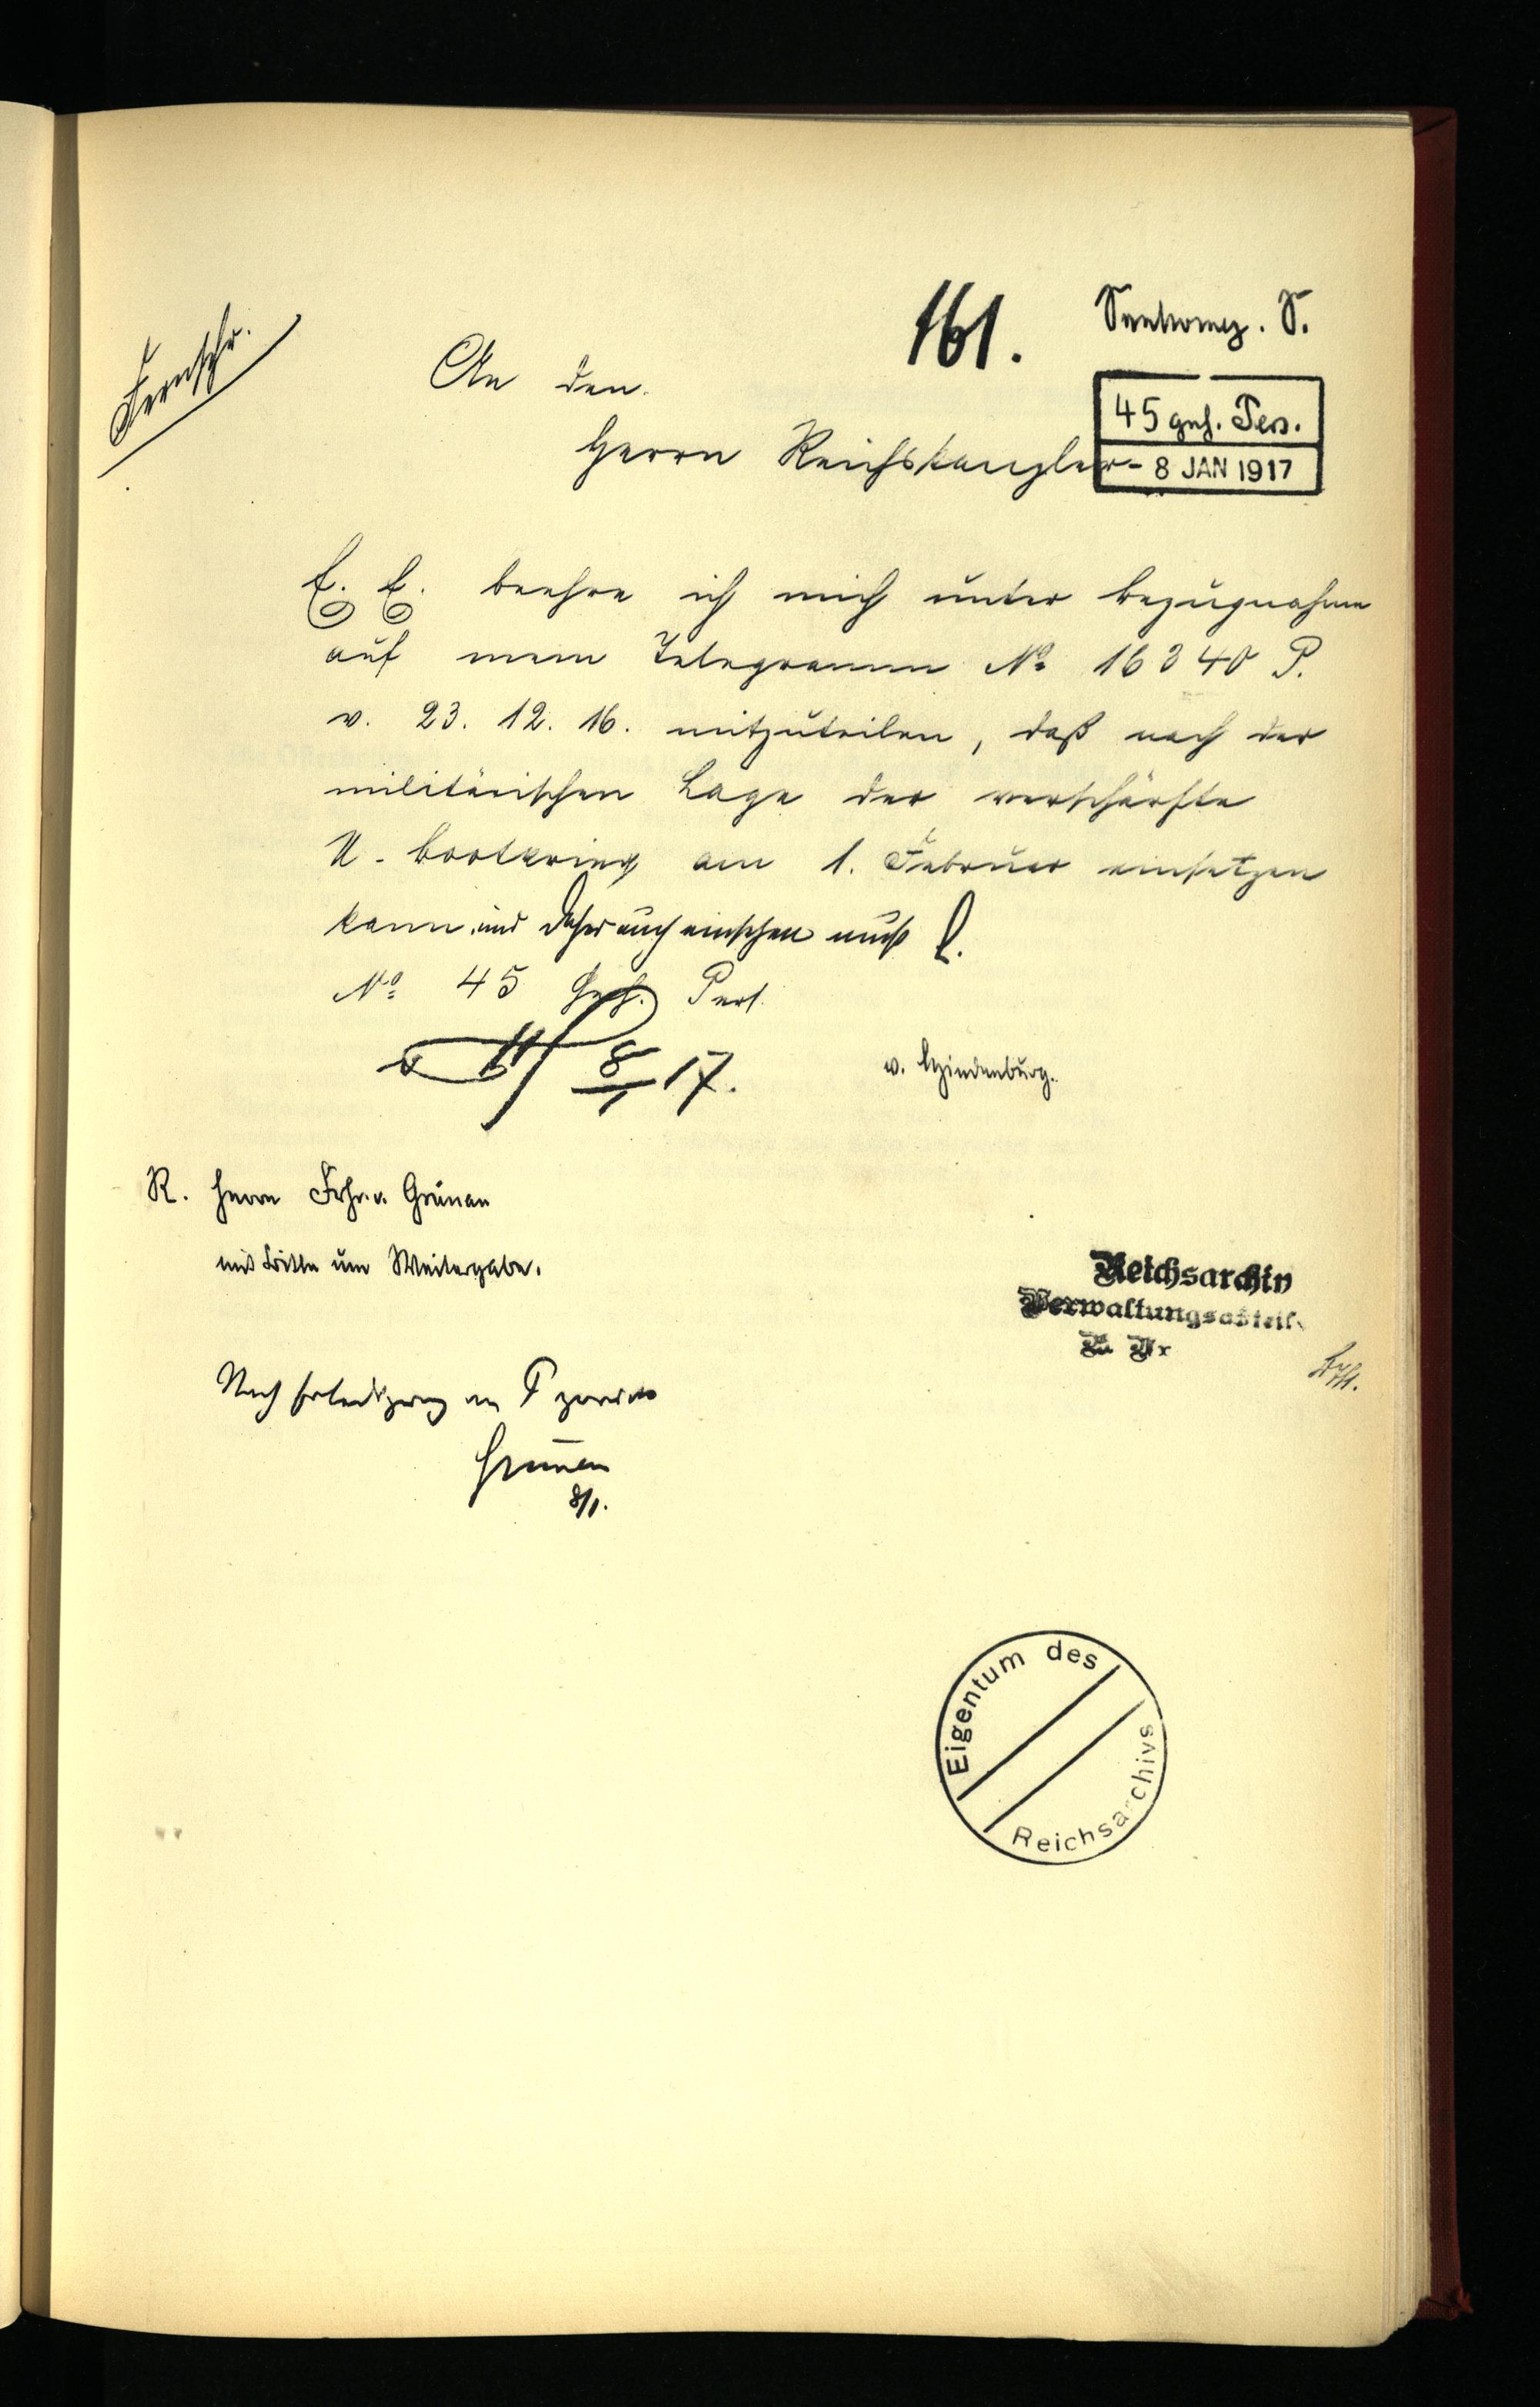 161.
Fernschr.
An den
Herrn Reichskanzler
45 geh. Pers.
- 8 JAN 1917
E. E. beehre ich mich unter Bezugnahme
auf mein Telegramm No 16340 P.
v. 23. 12. 16. mitzuteilen, daß nach der
militärischen Lage der verschärfte
U-Bootkrieg am 1. Februar einsetzen
kann und daher auch einsetzen muß
No 45 Geh. Pers.
8/1 17.
v. Hindenburg.
R. Herrn Frhr. v. Grünau
mit Bitte um Weitergabe.
Reichsarchiv
Verwaltungsabteil.
Nach Erledigung an P zurück
Grünau
8/1.
Eigentum des
Reichsarchivs